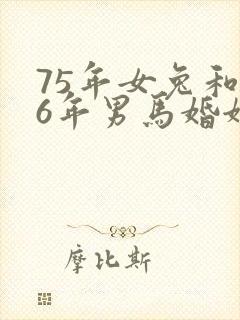 75年女兔和
6年男馬婚
摩比斯